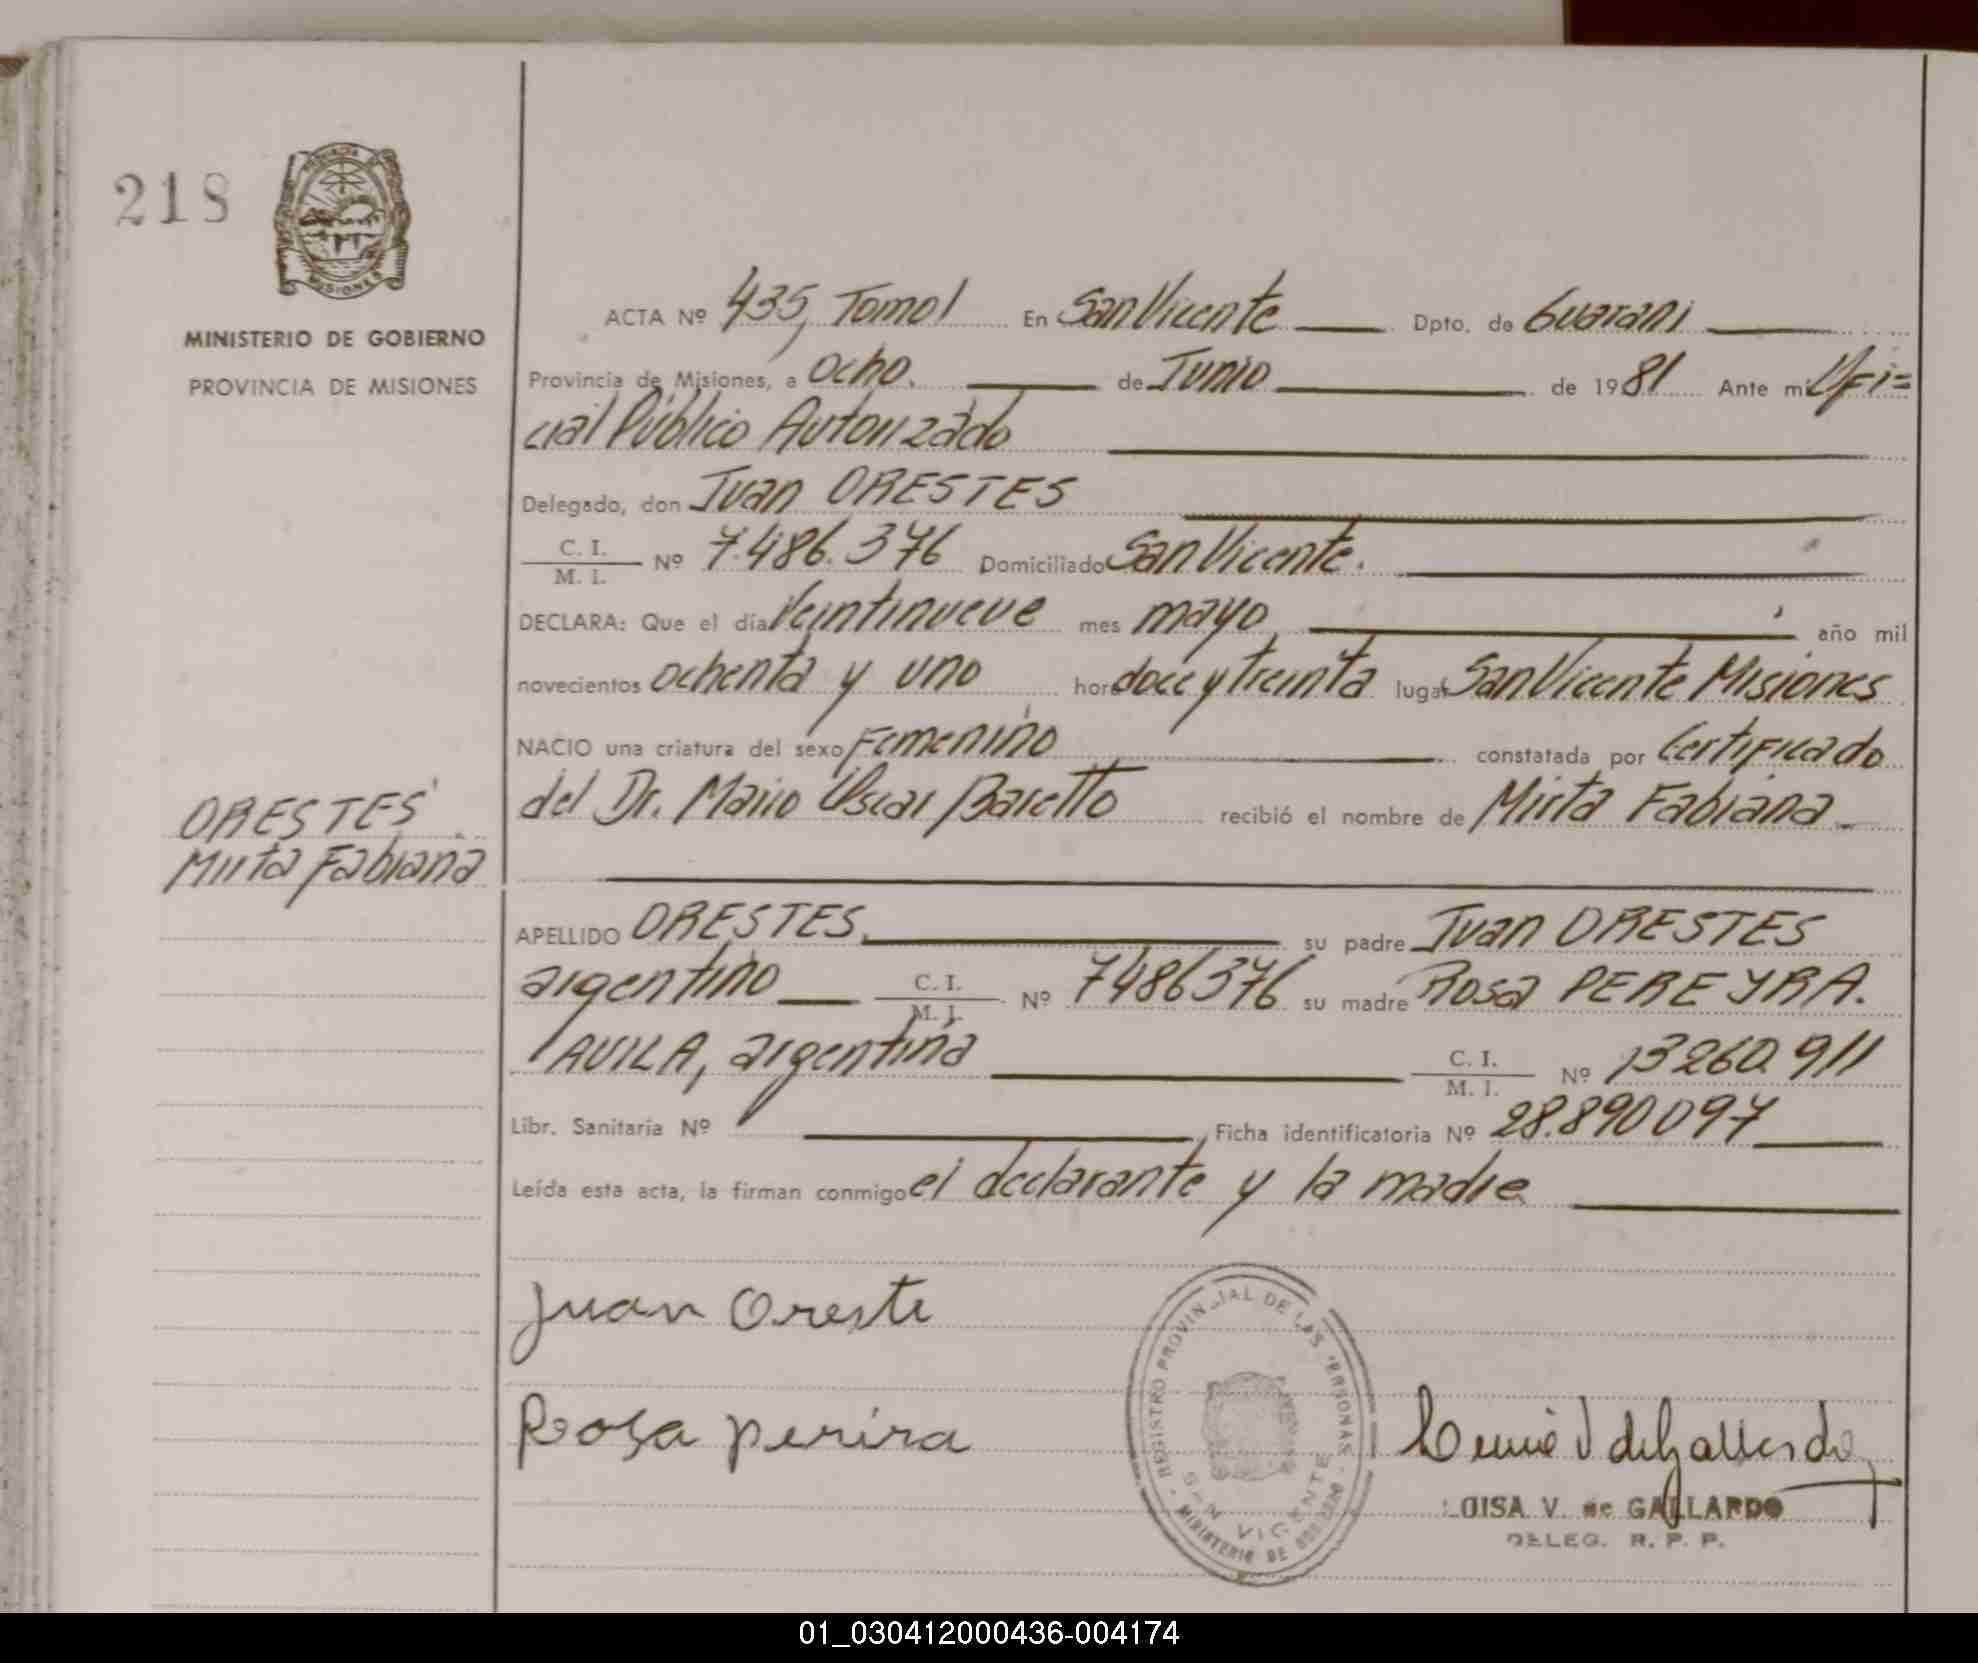 218
PROVINCIA
MISIONES
MINISTERIO DE GOBIERNO
PROVINCIA DE MISIONES
ORESTES
Mirta Fabiana
ACTA Nº 435, Tomo I En San Vicente Dpto. de Guarani
Provincia de Misiones, a ocho. de Junio de 1981 Ante mi Ofi=
cial Público Autorizado
Delegado, don Juan ORESTES
C. I. / M. I. Nº 7.486.376 Domiciliado San Vicente.
DECLARA: Que el día Veintinueve mes mayo año mil
novecientos ochenta y uno hora doce y treinta lugar San Vicente Misiones
NACIO una criatura del sexo Femenino constatada por Certificado
del Dr. Mario Oscar Baretto recibió el nombre de Mirta Fabiana
APELLIDO ORESTES, su padre Juan ORESTES
argentino C. I. / M. I. Nº 7486376 su madre Rosa PEREYRA.
AVILA, argentina C. I. / M. I. Nº 13260.911
Libr. Sanitaria Nº Ficha identificatoria Nº 28.890097
Leída esta acta, la firman conmigo el declarante y la madre
Juan Oreste
Rosa perira
REGISTRO PROVINCIAL DE LAS PERSONAS
SAN VICENTE
MINISTERIO DE GOBIERNO
V de Gallardo
LOISA V. de GALLARDO
DELEG. R. P. P.
01_030412000436-004174